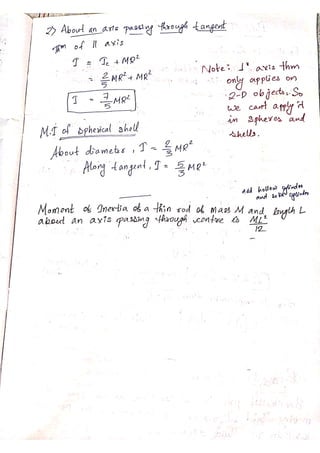 2) About an axis passing through tangent
Thm of || axis
I = Ic + MR²
= 2/5 MR² + MR²
I = 7/5 MR²
Note: ⊥r axis thm
only applies on
2-D objects. So
we cant apply it
in spheres and
shells.
M.I of spherical shell
About diameter, I = 2/3 MR²
Along tangent, I = 5/3 MR²
add hollow cylinder
and solid cylinder
Moment of Inertia of a thin rod of mass M and length L
about an axis passing through centre is ML²/12